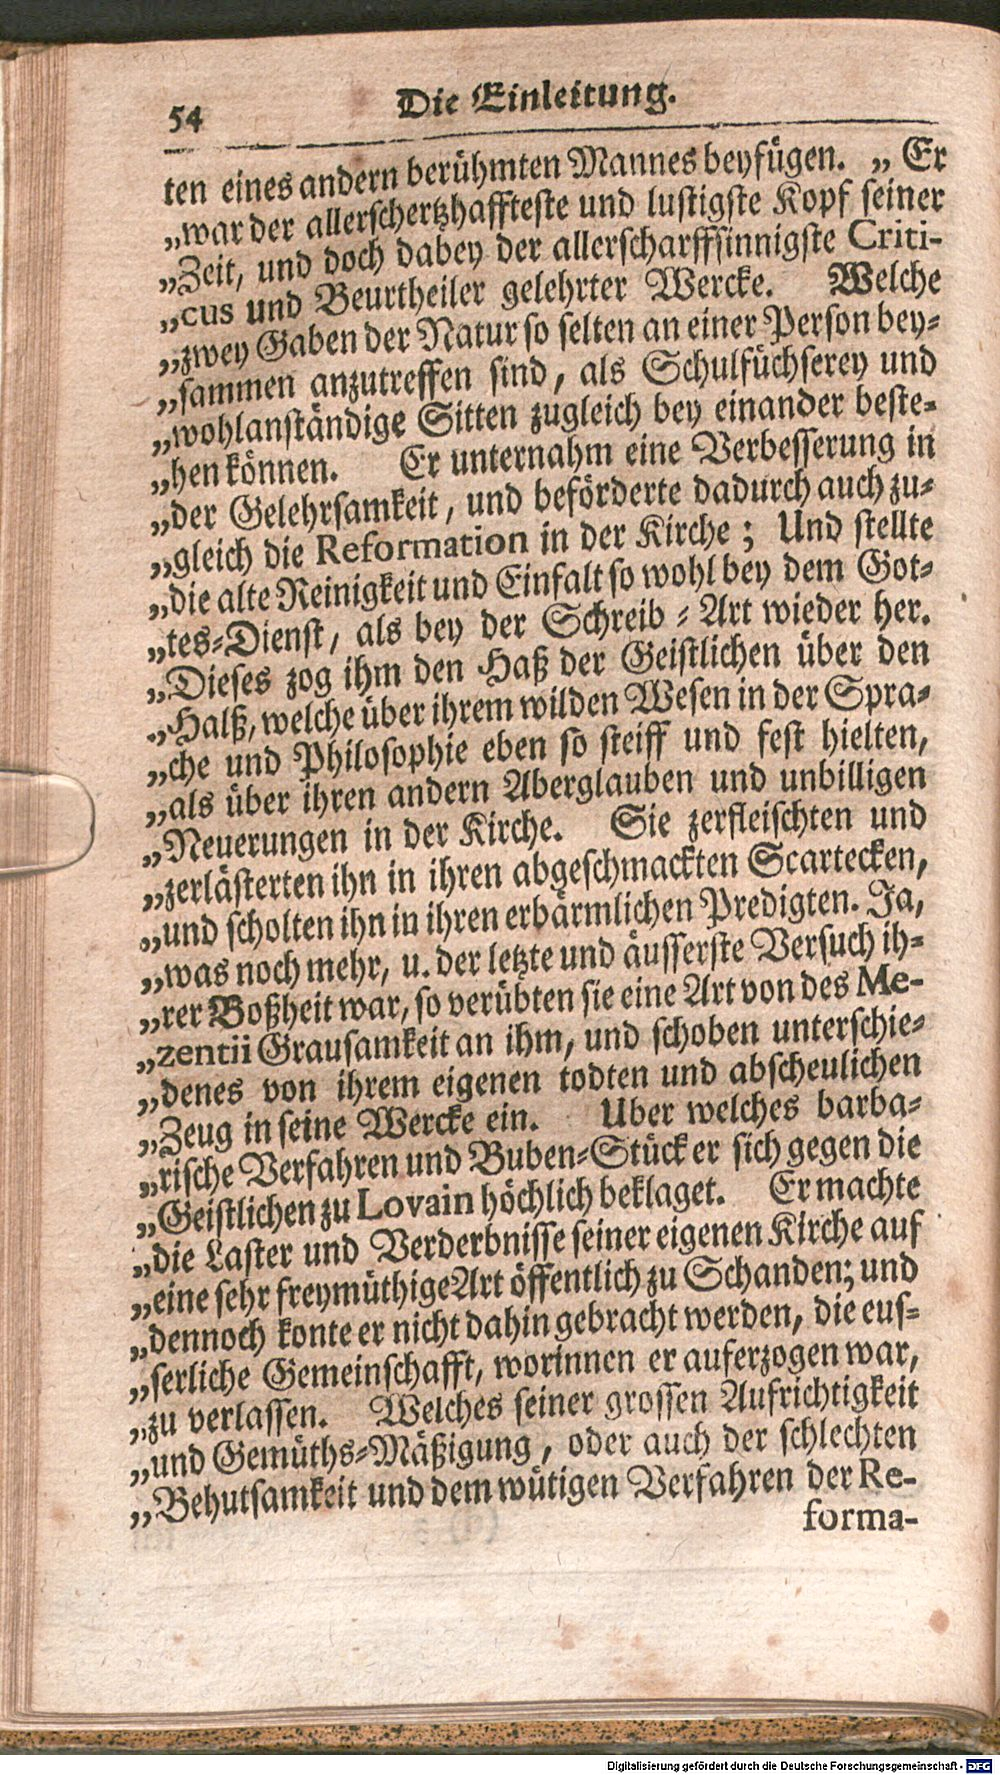 54
Die Einleitung.
ten eines andern berühmten Mannes beyfügen. „ Er
„war der allerschertzhaffteste und lustigste Kopf seiner
„Zeit, und doch dabey der allerscharffsinnigste Criti-
„cus und Beurtheiler gelehrter Wercke. Welche
„zwey Gaben der Natur so selten an einer Person bey-
„sammen anzutreffen sind, als Schulfüchserey und
„wohlanständige Sitten zugleich bey einander beste-
„hen können. Er unternahm eine Verbesserung in
„der Gelehrsamkeit, und beförderte dadurch auch zu-
„gleich die Reformation in der Kirche; Und stellte
„die alte Reinigkeit und Einfalt so wohl bey dem Got-
„tes-Dienst, als bey der Schreib-Art wieder her.
„Dieses zog ihm den Haß der Geistlichen über den
„Halß, welche über ihrem wilden Wesen in der Spra-
„che und Philosophie eben so steiff und fest hielten,
„als über ihren andern Aberglauben und unbilligen
„Neuerungen in der Kirche. Sie zerfleischten und
„zerlästerten ihn in ihren abgeschmackten Scartecken,
„und scholten ihn in ihren erbärmlichen Predigten. Ja,
„was noch mehr, u. der letzte und äusserste Versuch ih-
„rer Boßheit war, so verübten sie eine Art von des Me-
„zentii Grausamkeit an ihm, und schoben unterschie-
„denes von ihrem eigenen todten und abscheulichen
„Zeug in seine Wercke ein. Uber welches barba-
„rische Verfahren und Buben-Stück er sich gegen die
„Geistlichen zu Lovain höchlich beklaget. Er machte
„die Laster und Verderbnisse seiner eigenen Kirche auf
„eine sehr freymüthige Art öffentlich zu Schanden; und
„dennoch konte er nicht dahin gebracht werden, die eus-
„serliche Gemeinschafft, worinnen er auferzogen war,
„zu verlassen. Welches seiner grossen Aufrichtigkeit
„und Gemüths-Mäßigung, oder auch der schlechten
„Behutsamkeit und dem wütigen Verfahren der Re-
forma-
Digitalisierung gefördert durch die Deutsche Forschungsgemeinschaft - DFG